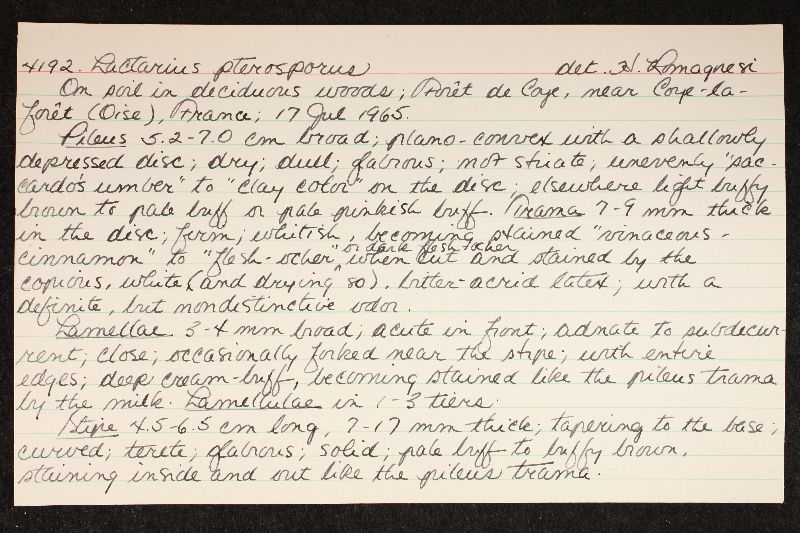 4192. Lactarius pterosporus det. H. Romagnesi
On soil in deciduous woods; Forêt de Coye, near Coye-la-
forêt (Oise), France; 17 Jul 1965.
Pileus 5.2-7.0 cm broad; plano-convex with a shallowly
depressed disc; dry; dull; glabrous; not striate; unevenly "sac-
cardo's umber" to "clay color" on the disc; elsewhere light buffy
brown to pale buff or pale pinkish buff. Trama 7-9 mm thick
in the disc; firm; whitish, becoming stained "vinaceous-
or dark flesh-ocher
cinnamon" to "flesh-ocher" when cut and stained by the
copious, white (and drying so), bitter-acrid latex; with a
definite, but nondistinctive odor.
Lamellae 3-4 mm broad; acute in front; adnate to subdecur-
rent; close; occasionally forked near the stipe; with entire
edges; deep cream-buff, becoming stained like the pileus trama
by the milk. Lamellulae in 1-3 tiers.
Stipe 4.5-6.5 cm long, 7-17 mm thick; tapering to the base;
curved; terete; glabrous; solid; pale buff to buffy brown,
staining inside and out like the pileus trama.